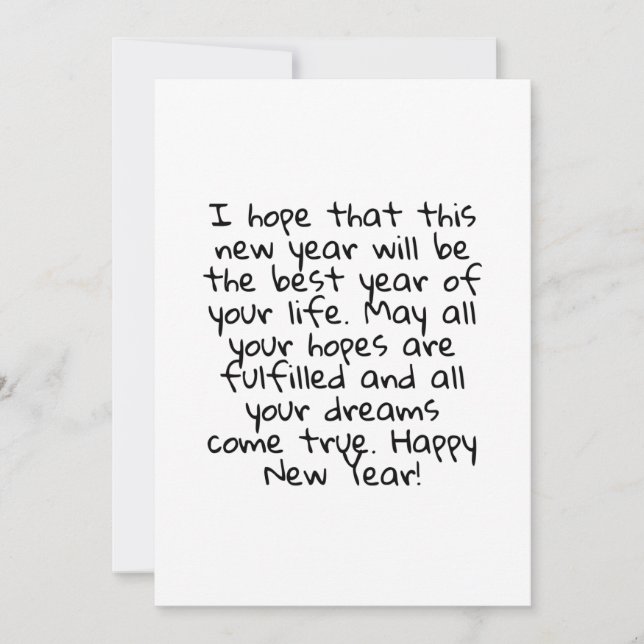 I hope that this
new year will be
the best year of
your life. May all
your hopes are
fulfilled and all
your dreams
come true. Happy
New Year!